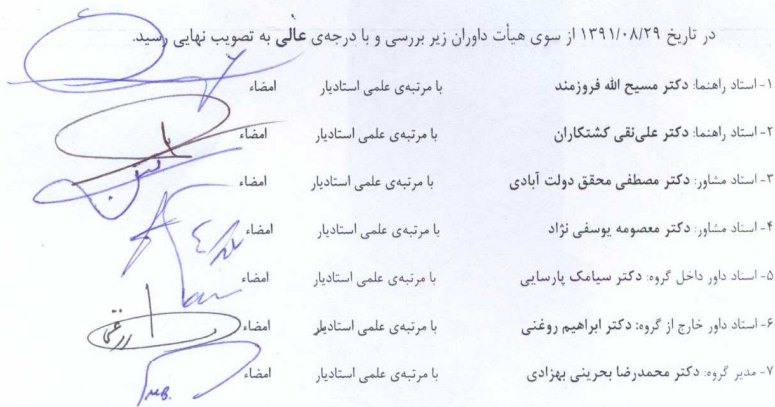 در تاریخ ۱۳۹۱/۰۸/۲۹ از سوی هیأت داوران زیر بررسی و با درجه‌ی عالی به تصویب نهایی رسید.
۱- استاد راهنما: دکتر مسیح الله فروزمند با مرتبه‌ی علمی استادیار امضاء
۲- استاد راهنما: دکتر علی‌نقی کشتکاران با مرتبه‌ی علمی استادیار امضاء
۳- استاد مشاور: دکتر مصطفی محقق دولت آبادی با مرتبه‌ی علمی استادیار امضاء
۴- استاد مشاور: دکتر معصومه یوسفی نژاد با مرتبه‌ی علمی استادیار امضاء
۵- استاد داور داخل گروه: دکتر سیامک پارسایی با مرتبه‌ی علمی استادیار امضاء
۶- استاد داور خارج از گروه: دکتر ابراهیم روغنی با مرتبه‌ی علمی استادیار امضاء
۷- مدیر گروه: دکتر محمدرضا بحرینی بهزادی با مرتبه‌ی علمی استادیار امضاء